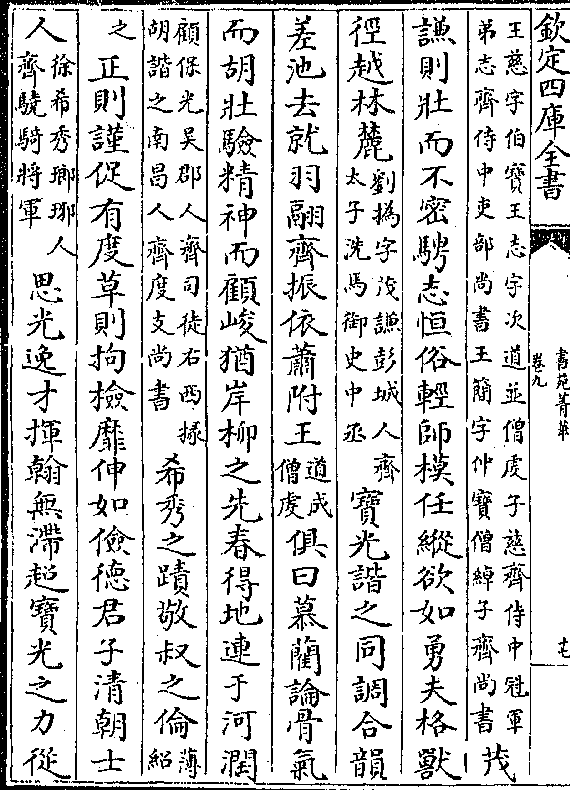 欽定四庫全書
書苑菁華
卷九
王慈字伯寶王志字次道並僧虔子慈齊侍中冠軍
弟志齊侍中吏部尚書王簡字仲寶僧綽子齊尚書
茂
謙則壯而不密騁志恒俗輕師模任縱欲如勇夫格獸
徑越林麓
劉撝字茂謙彭城人齊
太子洗馬御史中丞
寶光諧之同調合韻
差池去就羽翮齊振依蕭附王
道成
僧虔
俱曰慕藺論骨氣
而胡壯驗精神而顧峻猶岸柳之先春得地連于河潤
顧保光吳郡人齊司徒右西掾
胡諧之南昌人齊度支尚書
希秀之蹟敬叔之倫
薄
紹
之
正則謹促有度草則拘檢靡伸如儉德君子清朝士
人
徐希秀瑯琊人
齊驍騎將軍
思光逸才揮翰無滯超寶光之力從